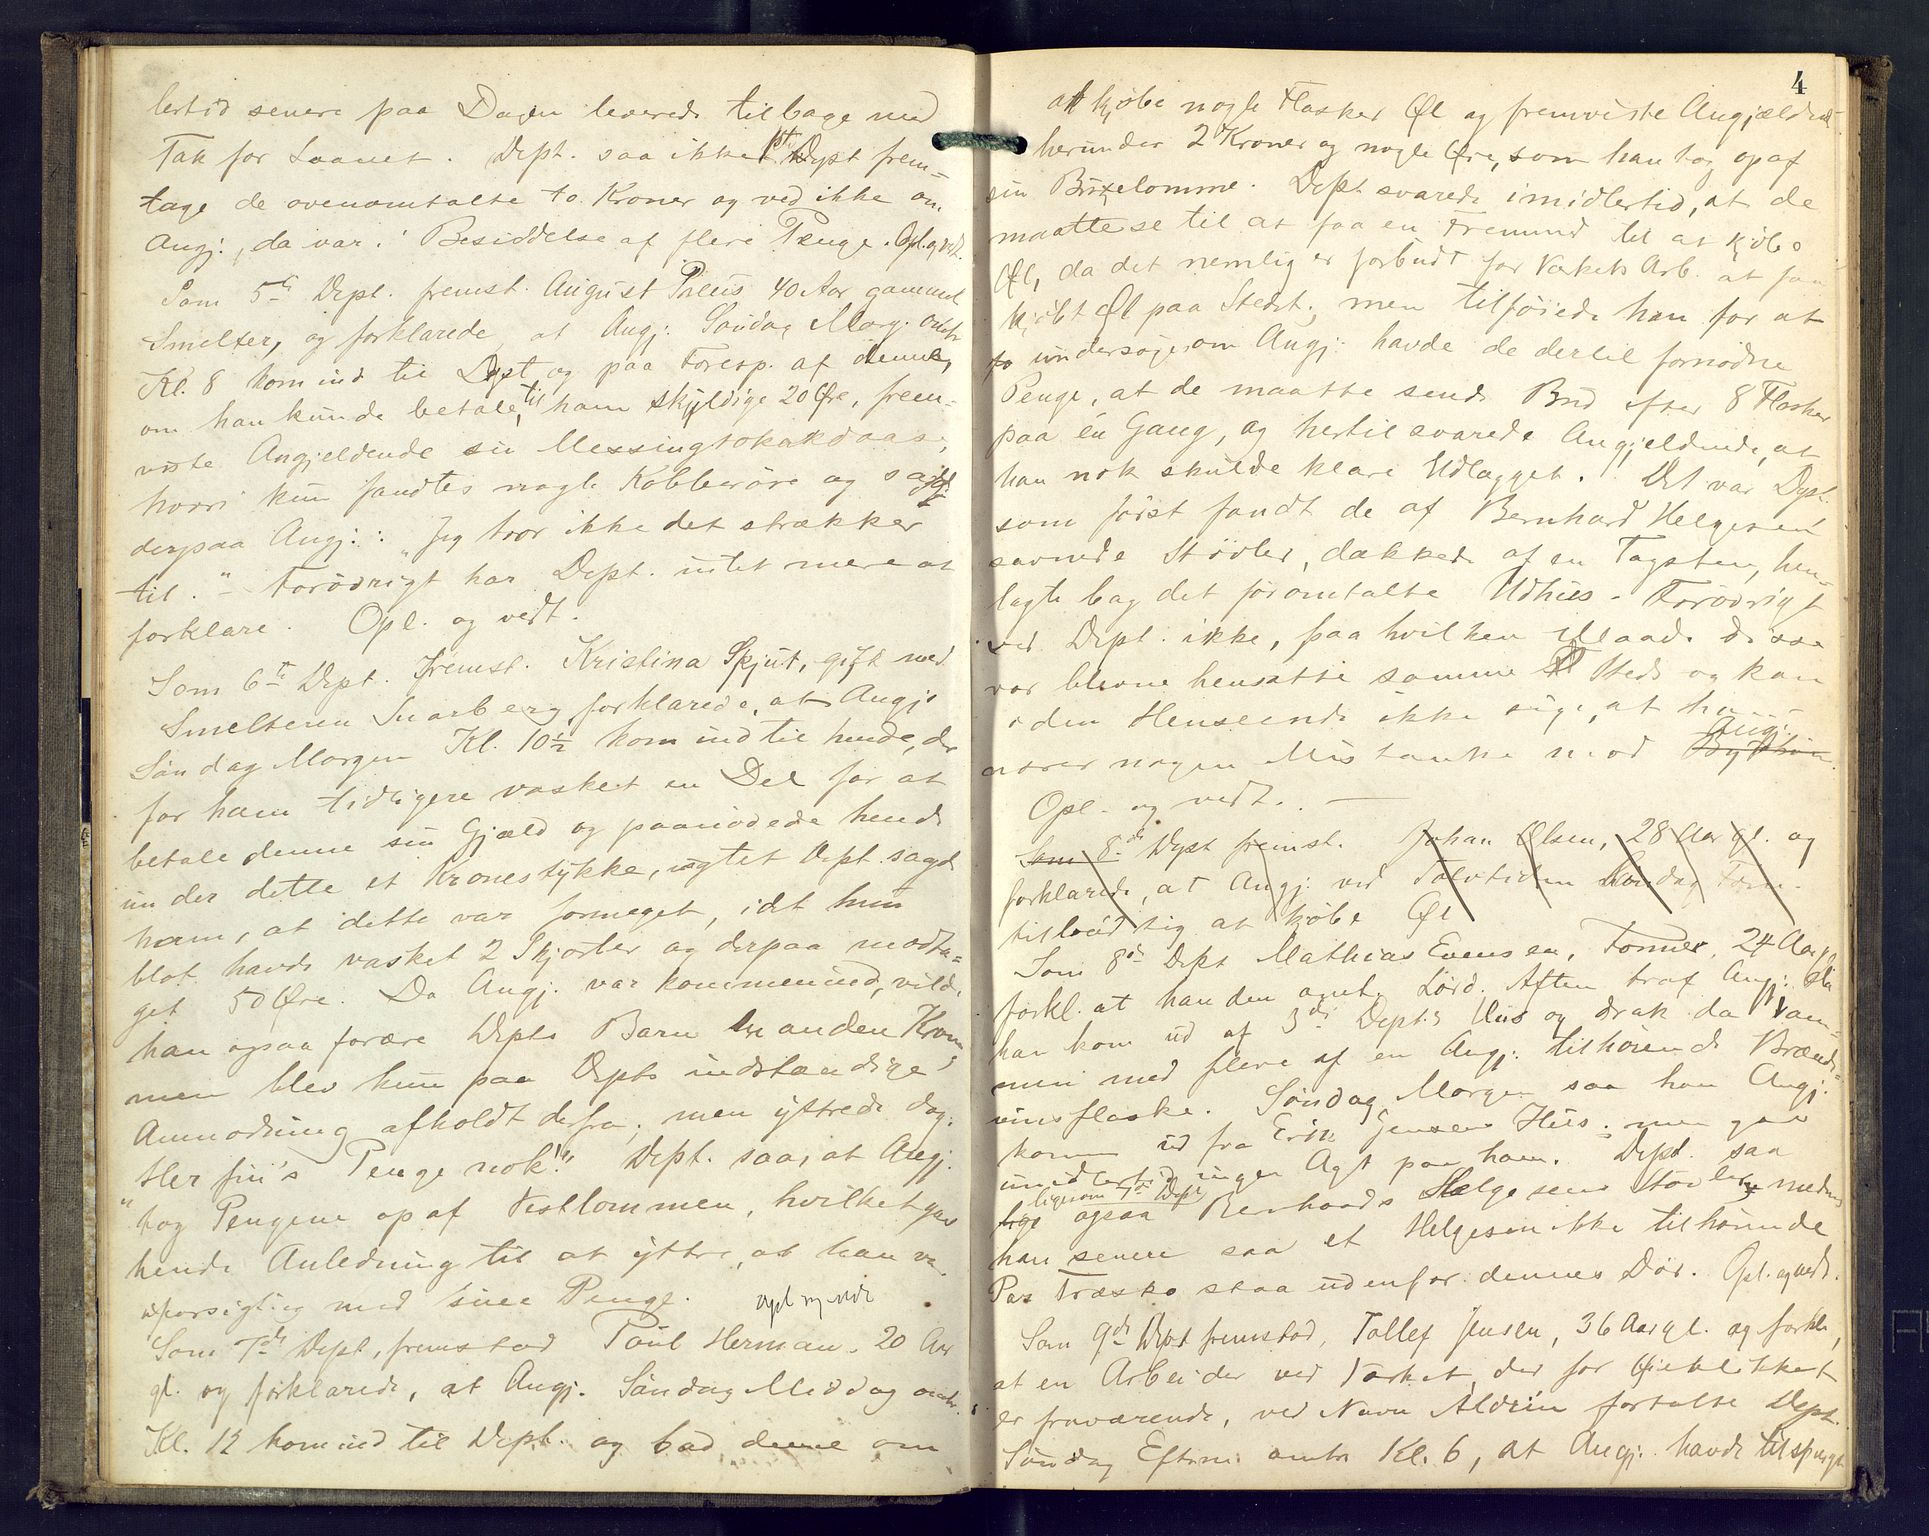 lertid senere paa Dagen leverede tilbage med
Tak for Laanet. Dept. saa ikke Dept frem-
tage de ovenomtalte to Kroner og ved ikke om
Angj., da var i Besiddelse af flere Penge. Opl. og vedt.
Som 5te Dept. fremst. August Preus 40 Aar gammel
Smelter, og forklarede, at Angj. Søndag Morg. omtr.
Kl. 8 kom ind til Dept og paa Foresp. af denne,
om han kunde betale til ham skyldige 20 Øre, frem-
viste Angjeldende sin Messingtobakdaase,
hvori kun fandtes nogle Kobberøre og sagde
derpaa Angj.: "Jeg tror ikke det strækker
til." - Forøvrigt har Dept. intet mere at
forklare. Opl. og vedt.
Som 6te Dept. fremst. Kristina Spjut, gift med
Smelteren Snarberg forklarede, at Angj.
Søndag Morgen Kl. 10½ kom ind til hende, der
for ham tidligere vasket en Del for at
betale denne sin Gjæld og paanødede hende
under dette et Kronestykke, ugtet Dept. sagde
ham, at dette var formeget, idet hun
blot havde vasket 2 Skjorter og derpaa modta-
get 50 Øre. Da Angj. var kommen ind, vilde
han ogsaa forære Depts Barn en anden Krone,
men blev kun paa Depts indstændige
Anmodning afholdt derfra, men yttrede dog:
"Her fin's Penge nok!" Dept. saa, at Angj.
tog Pengene op af Vestlommen, hvilket gav
hende Anledning til at yttre, at han var
uforsigtig med sine Penge. opl og vedt
Som 7de Dept. fremstod Paul Herman. 20 Aar
gl. og forklarede, at Angj. Søndag Middag omtr.
Kl. 12 kom ind til Dept. og bad denne om
4
at kjøbe nogle Flasker Øl og fremviste Angjældende
herunder 2 Kroner og nogle Øre, som han tog op af
sin Buxelomme. Dept svarede imidlertid, at de
maatte se til at faa en Fremmed til at kjøbe
Øl, da det nemlig er forbudt for Værkets Arb. at faa
kjøbt Øl paa Stedet; men tilføiede han for at
undersøge, om Angj. havde de dertil fornødne
Penge, at de maatte sende Bud efter 8 Flasker
paa én Gang, og hertil svarede Angjeldende, at
han nok skulde klare Udlægget. Det var Dept.
som først fandt de af Bernhard Helgesen
savnede Støvler, dækkede af en Tagsten, hen-
lagte bag det føromtalte Udhus. Forøvrigt
ved Dept. ikke, paa hvilken Maade disse
var blevne hensatte samme Steds og kan
i den Henseende ikke sige, at han
nærer nogen Mistanke mod Angj.
Opl. og vedt. —
Som 8de Dept fremst. Johan Olsen, 28 Aar gl. og
forklarede, at Angj. ved Tolvtiden Søndag Form.
tilbød sig at kjøbe Øl
Som 8de Dept Mathias Evensen, Former, 24 Aar,
forkl. at han den omt. Lørd. Aften traf Angj. da
han kom ud af 3die Depts Hus og drak da sam-
men med flere af en Angj. tilhørende Brænde-
vinsflaske. Søndag Morgen saa han Angj.
komme ud fra Erik Jensens Hus, men gav
imidlertid ingen Agt paa ham. Dept. saa
ligesom 7de Dept
ogsaa Bernhards Helgesens Støvler, medens
han senere saa et Helgesen ikke tilhørende
Par Træsko staa udenfor dennes Dør. Opl. og vedt.
Som 9de Dept fremstod, Tollef Jensen, 36 Aar gl. og forkl.,
at en Arbeider ved Værket, der for Øieblikket
er fraværende, ved Navn Aldrin fortalte Dept.
Søndag Efterm. omtr Kl. 6, at Angj. havde tilspurgt